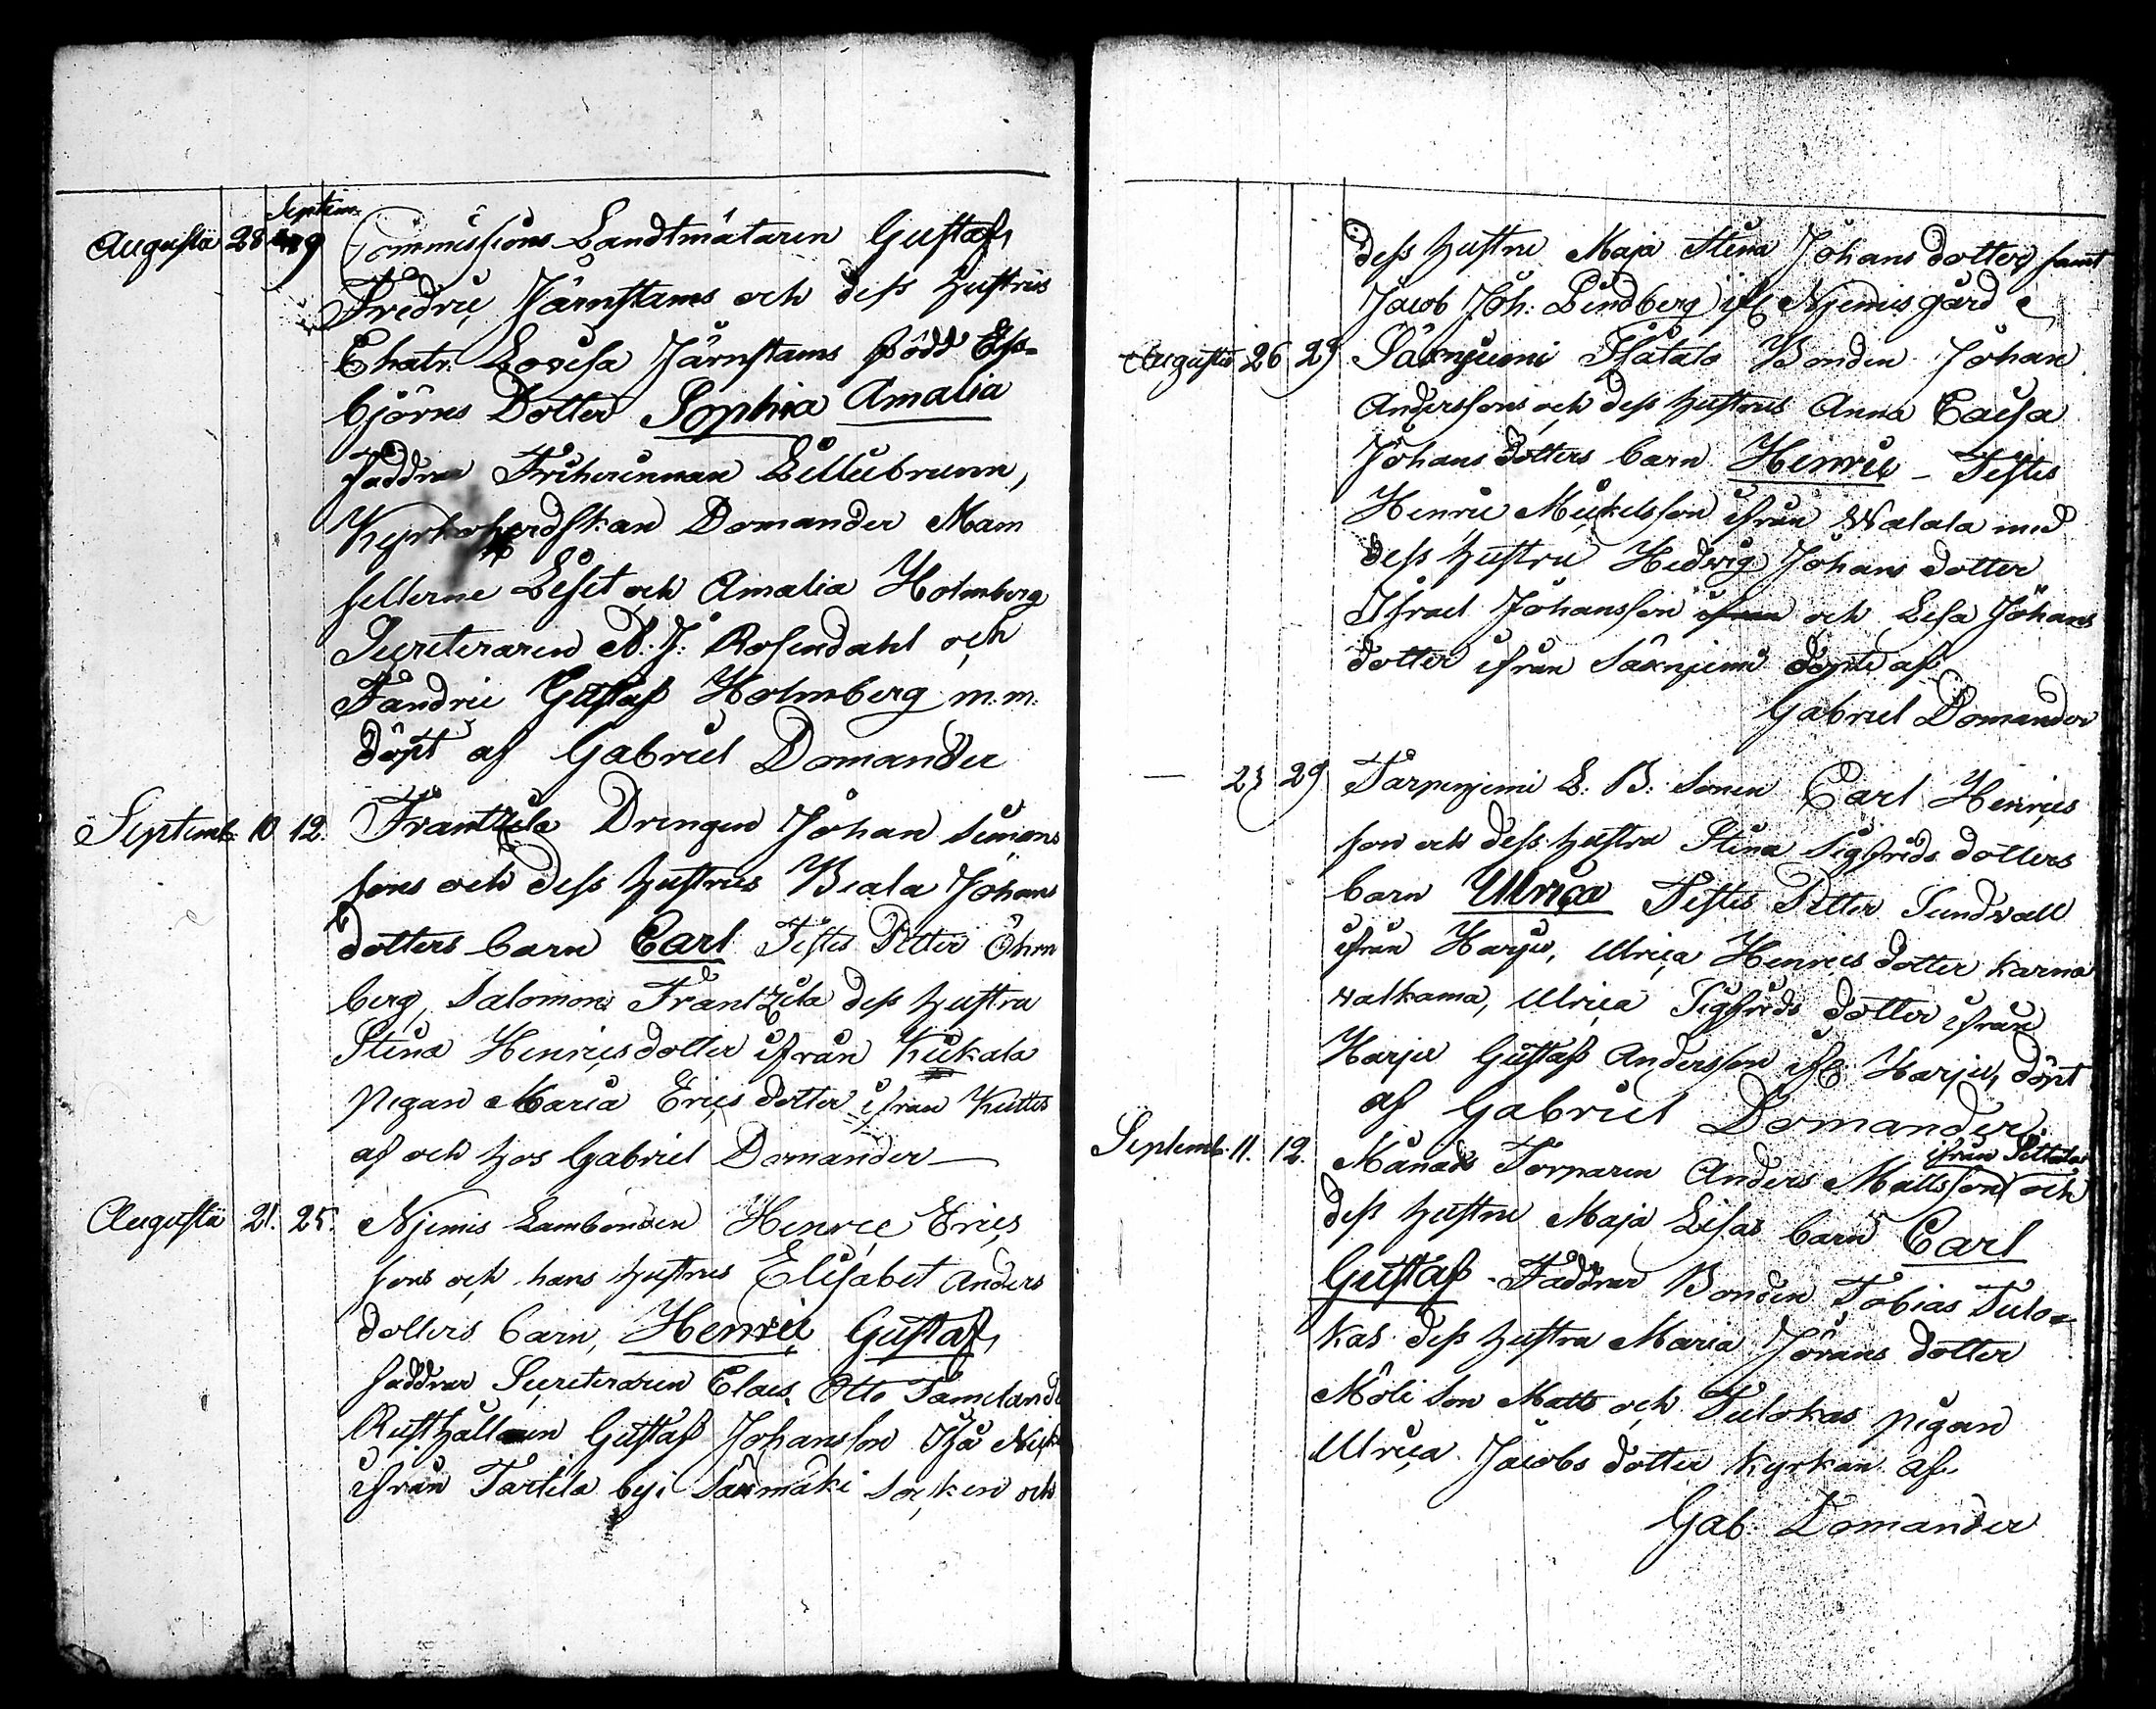 Septem.
Augustii 28 9 Commissions Landtmätaren Gustaf
Fredric Järnstams och dess hustrus
Chatr. Lovisa Järnstams född Ess-
björns Dotter Sophia Amalia
faddrar Friherinnan Lilliebrunn,
Kyrkoherdskan Domander Mam
sellerne Liset och Amalia Holmberg
Secreteraren A. J. Rosendahl och
Fändric Gustaf Holmberg m.m.
döpt af Gabriel Domander
Septemb. 10 12. Frantzila Drengen Johan Simons
sons och dess hustrus Beata Johans
dotters barn Carl Testes Petter Öhrn
berg, Salomon Frantzila dess hustru
Stina Henricsdotter ifrån Kukala
pigan Maria Erics dotter ifrån
af och hos Gabriel Domander
Augustii 21. 25. Njemis Lambonden Henric Erics
sons och hans hustrus Elisabet Anders
dotters barn, Henric Gustaf,
faddrar Secreteraren Claes Otto Tamelander
Rusthållaren Gustaf Johansson
ifrån Tartila by i Säxmäki Socken och
dess hustru Maja Stina Johans dotter, samt
Jacob Joh: Lindberg if: Njemis gård
Augustii 26 29 Säxnjemi Bonden Johan
Anderssons och dess hustrus Anna Caisa
Johans dotters barn Henric – Testes
Henric Mickelsson ifrån Walala med
dess hustru Hedvig Johans dotter
Israel Johansson ifrån och Lisa Johans
dotter ifrån Säxnjemi döpte af
Gabriel Domander
— 23 29 Tarpenjemi L: B: Sonen Carl Henrics
son och dess hustru Stina Sigfrids dotters
barn Ulrica Testes Petter Sundvall
ifrån Harju, Ulrica Henrics dotter Karna
walkama, Ulrica Sigfrids dotter ifrån
Harju Gustaf Andersson if: Harju, döpt
af Gabriel Domander
ifrån
Septemb. 11. 12. Månads Torparen Anders Mattsson och
dess hustru Maja Lisas barn Carl
Gustaf - Faddrar Bonden Tobias Tulo-
kas dess hustru Maria Jörans dotter
Möli Son Matts och Tulokas pigan
Ulrica Jacobs dotter Kyrkan af
Gab: Domander